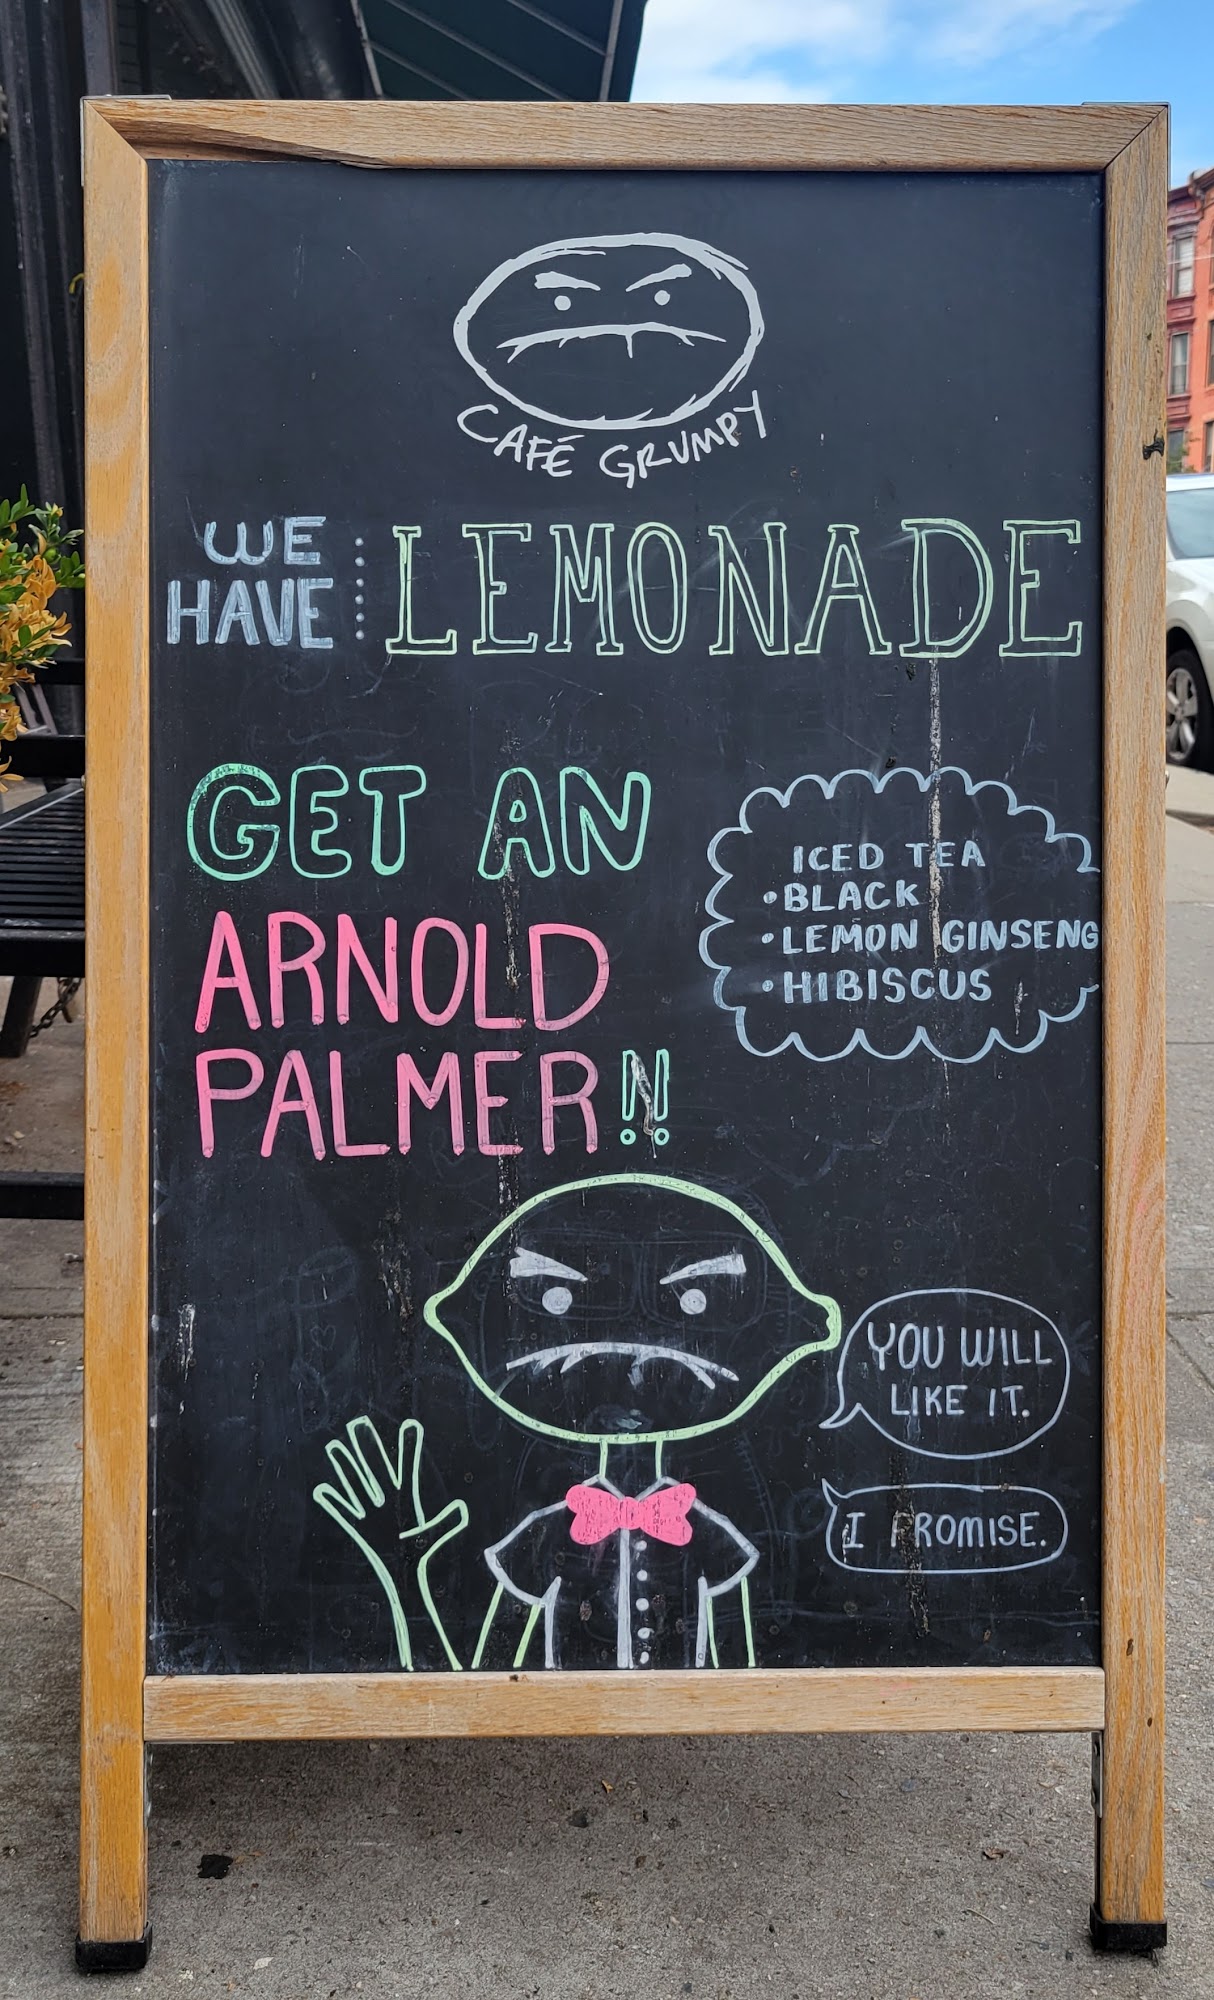 CAFÉ GRUMPY
WE
HAVE
LEMONADE
GET AN
ARNOLD
PALMER!!
ICED TEA
•BLACK
•LEMON GINSENG
•HIBISCUS
YOU WILL
LIKE IT.
I PROMISE.